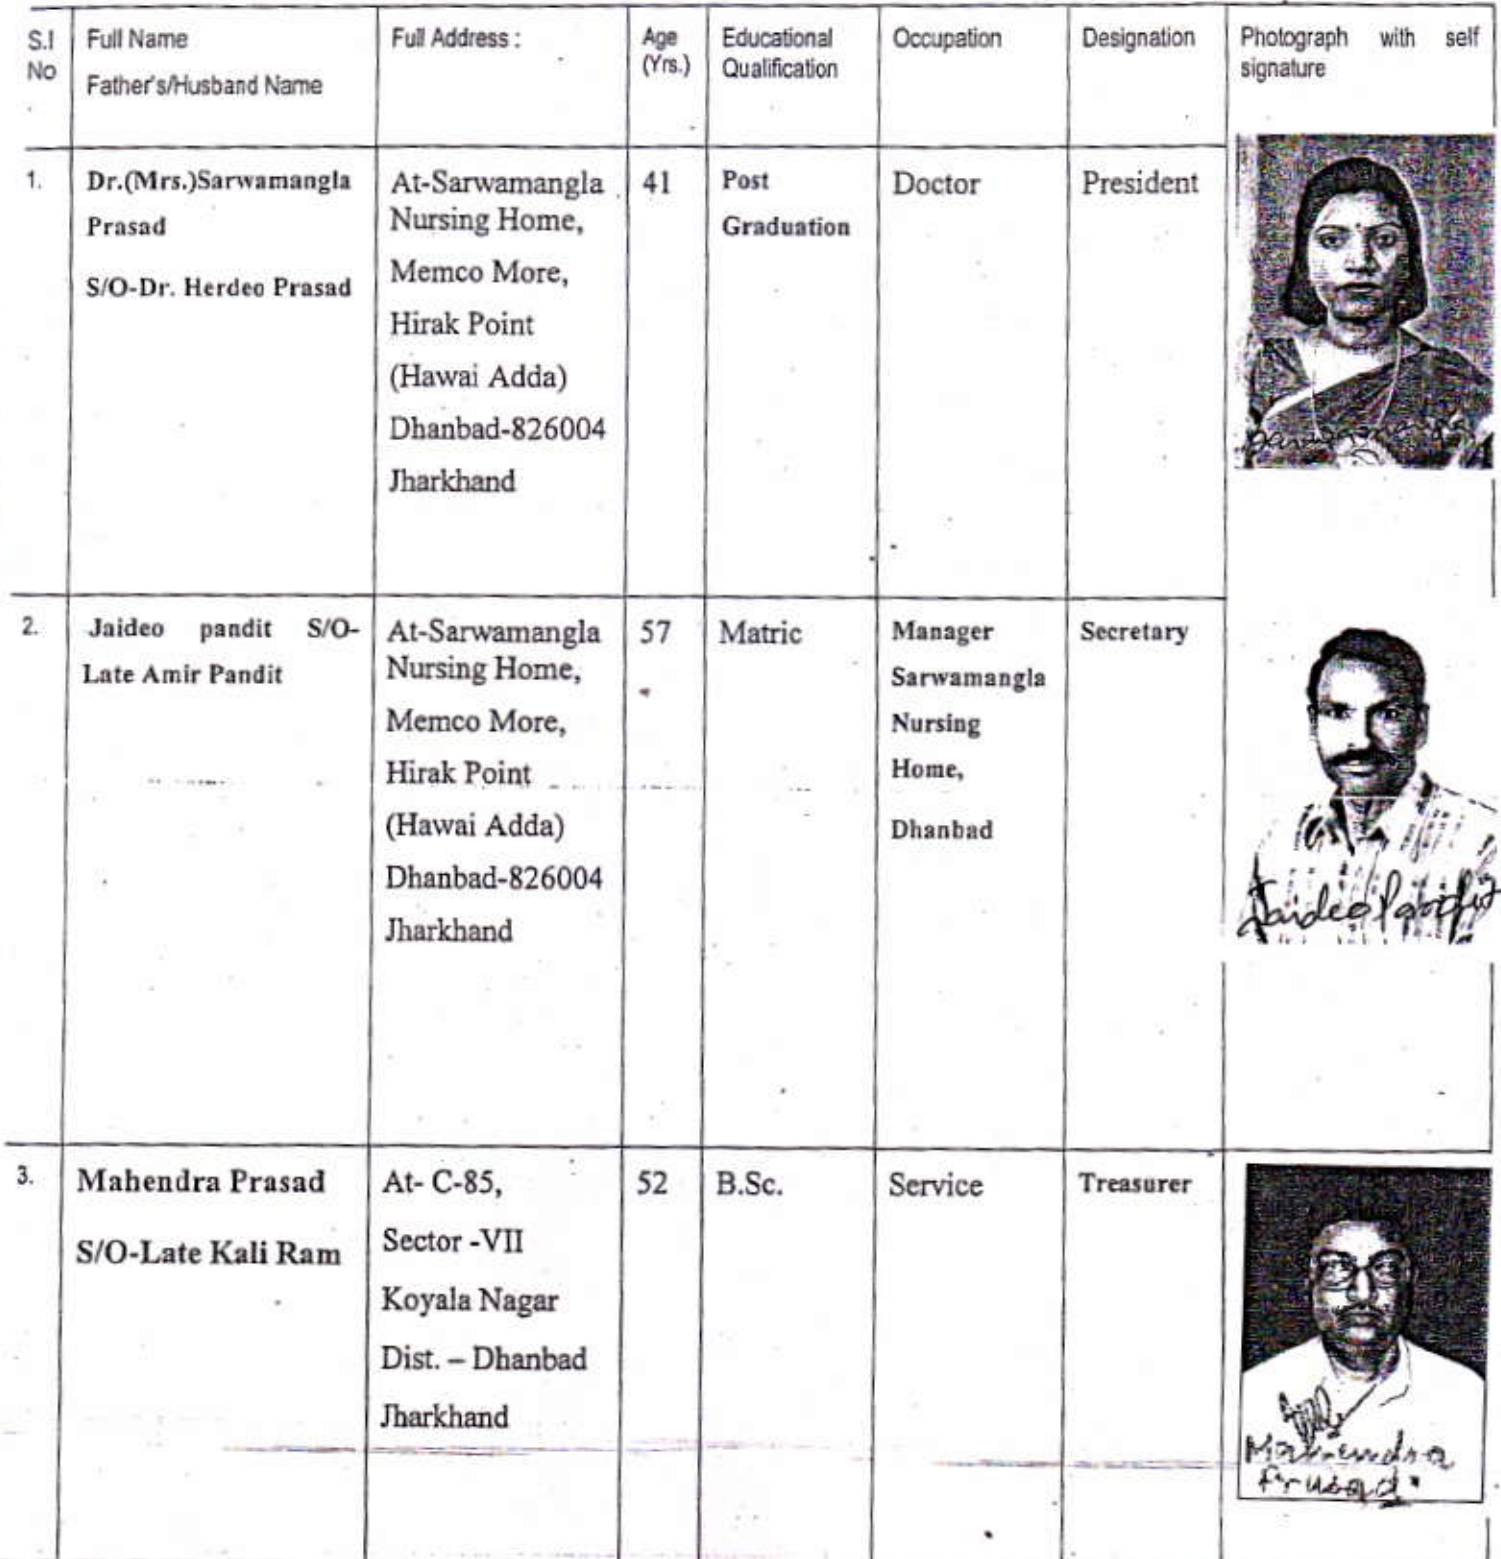 S.I No
Full Name
Father's/Husband Name
Full Address :
Age (Yrs.)
Educational Qualification
Occupation
Designation
Photograph with self signature
1.
Dr.(Mrs.)Sarwamangla
Prasad
S/O-Dr. Herdeo Prasad
At-Sarwamangla
Nursing Home,
Memco More,
Hirak Point
(Hawai Adda)
Dhanbad-826004
Jharkhand
41
Post
Graduation
Doctor
President
2.
Jaideo pandit S/O-
Late Amir Pandit
At-Sarwamangla
Nursing Home,
Memco More,
Hirak Point
(Hawai Adda)
Dhanbad-826004
Jharkhand
57
Matric
Manager
Sarwamangla
Nursing
Home,
Dhanbad
Secretary
Jaideo Pandit
3.
Mahendra Prasad
S/O-Late Kali Ram
At- C-85,
Sector -VII
Koyala Nagar
Dist. – Dhanbad
Jharkhand
52
B.Sc.
Service
Treasurer
Mahendra
Prasad